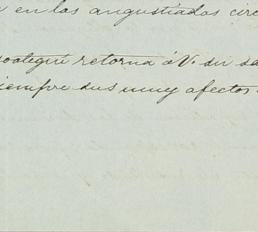 en las angustiadas circ
retorna á V. su sa
siempre sus muy afectos